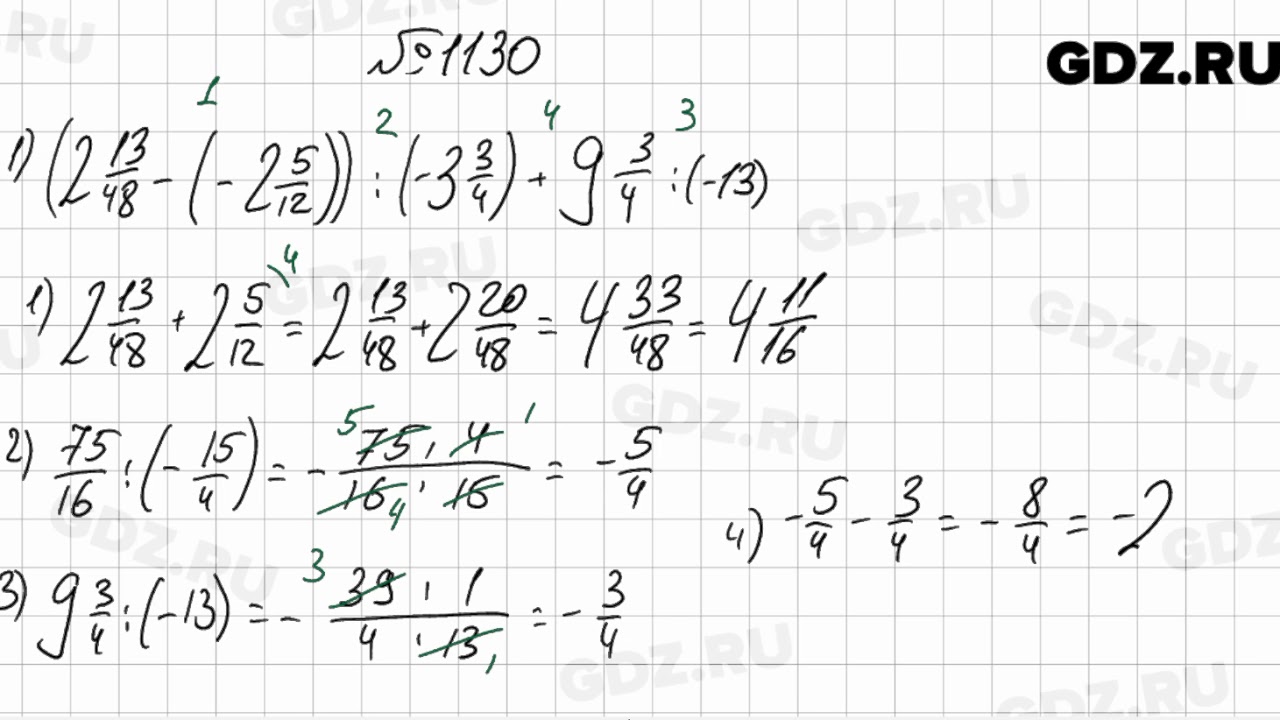 №1130
GDZ.RU
1) (2 13/48 - (-2 5/12)) : (-3 3/4) + 9 3/4 : (-13)
1 2 4 3
1) 2 13/48 + 2 5/12 = 2 13/48 + 2 20/48 = 4 33/48 = 4 11/16
4
2) 75/16 : (-15/4) = - 75 · 4 / 16 · 15 = - 5/4
5 1 4
3) 9 3/4 : (-13) = - 39 · 1 / 4 · 13 = - 3/4
3 1
4) - 5/4 - 3/4 = - 8/4 = -2